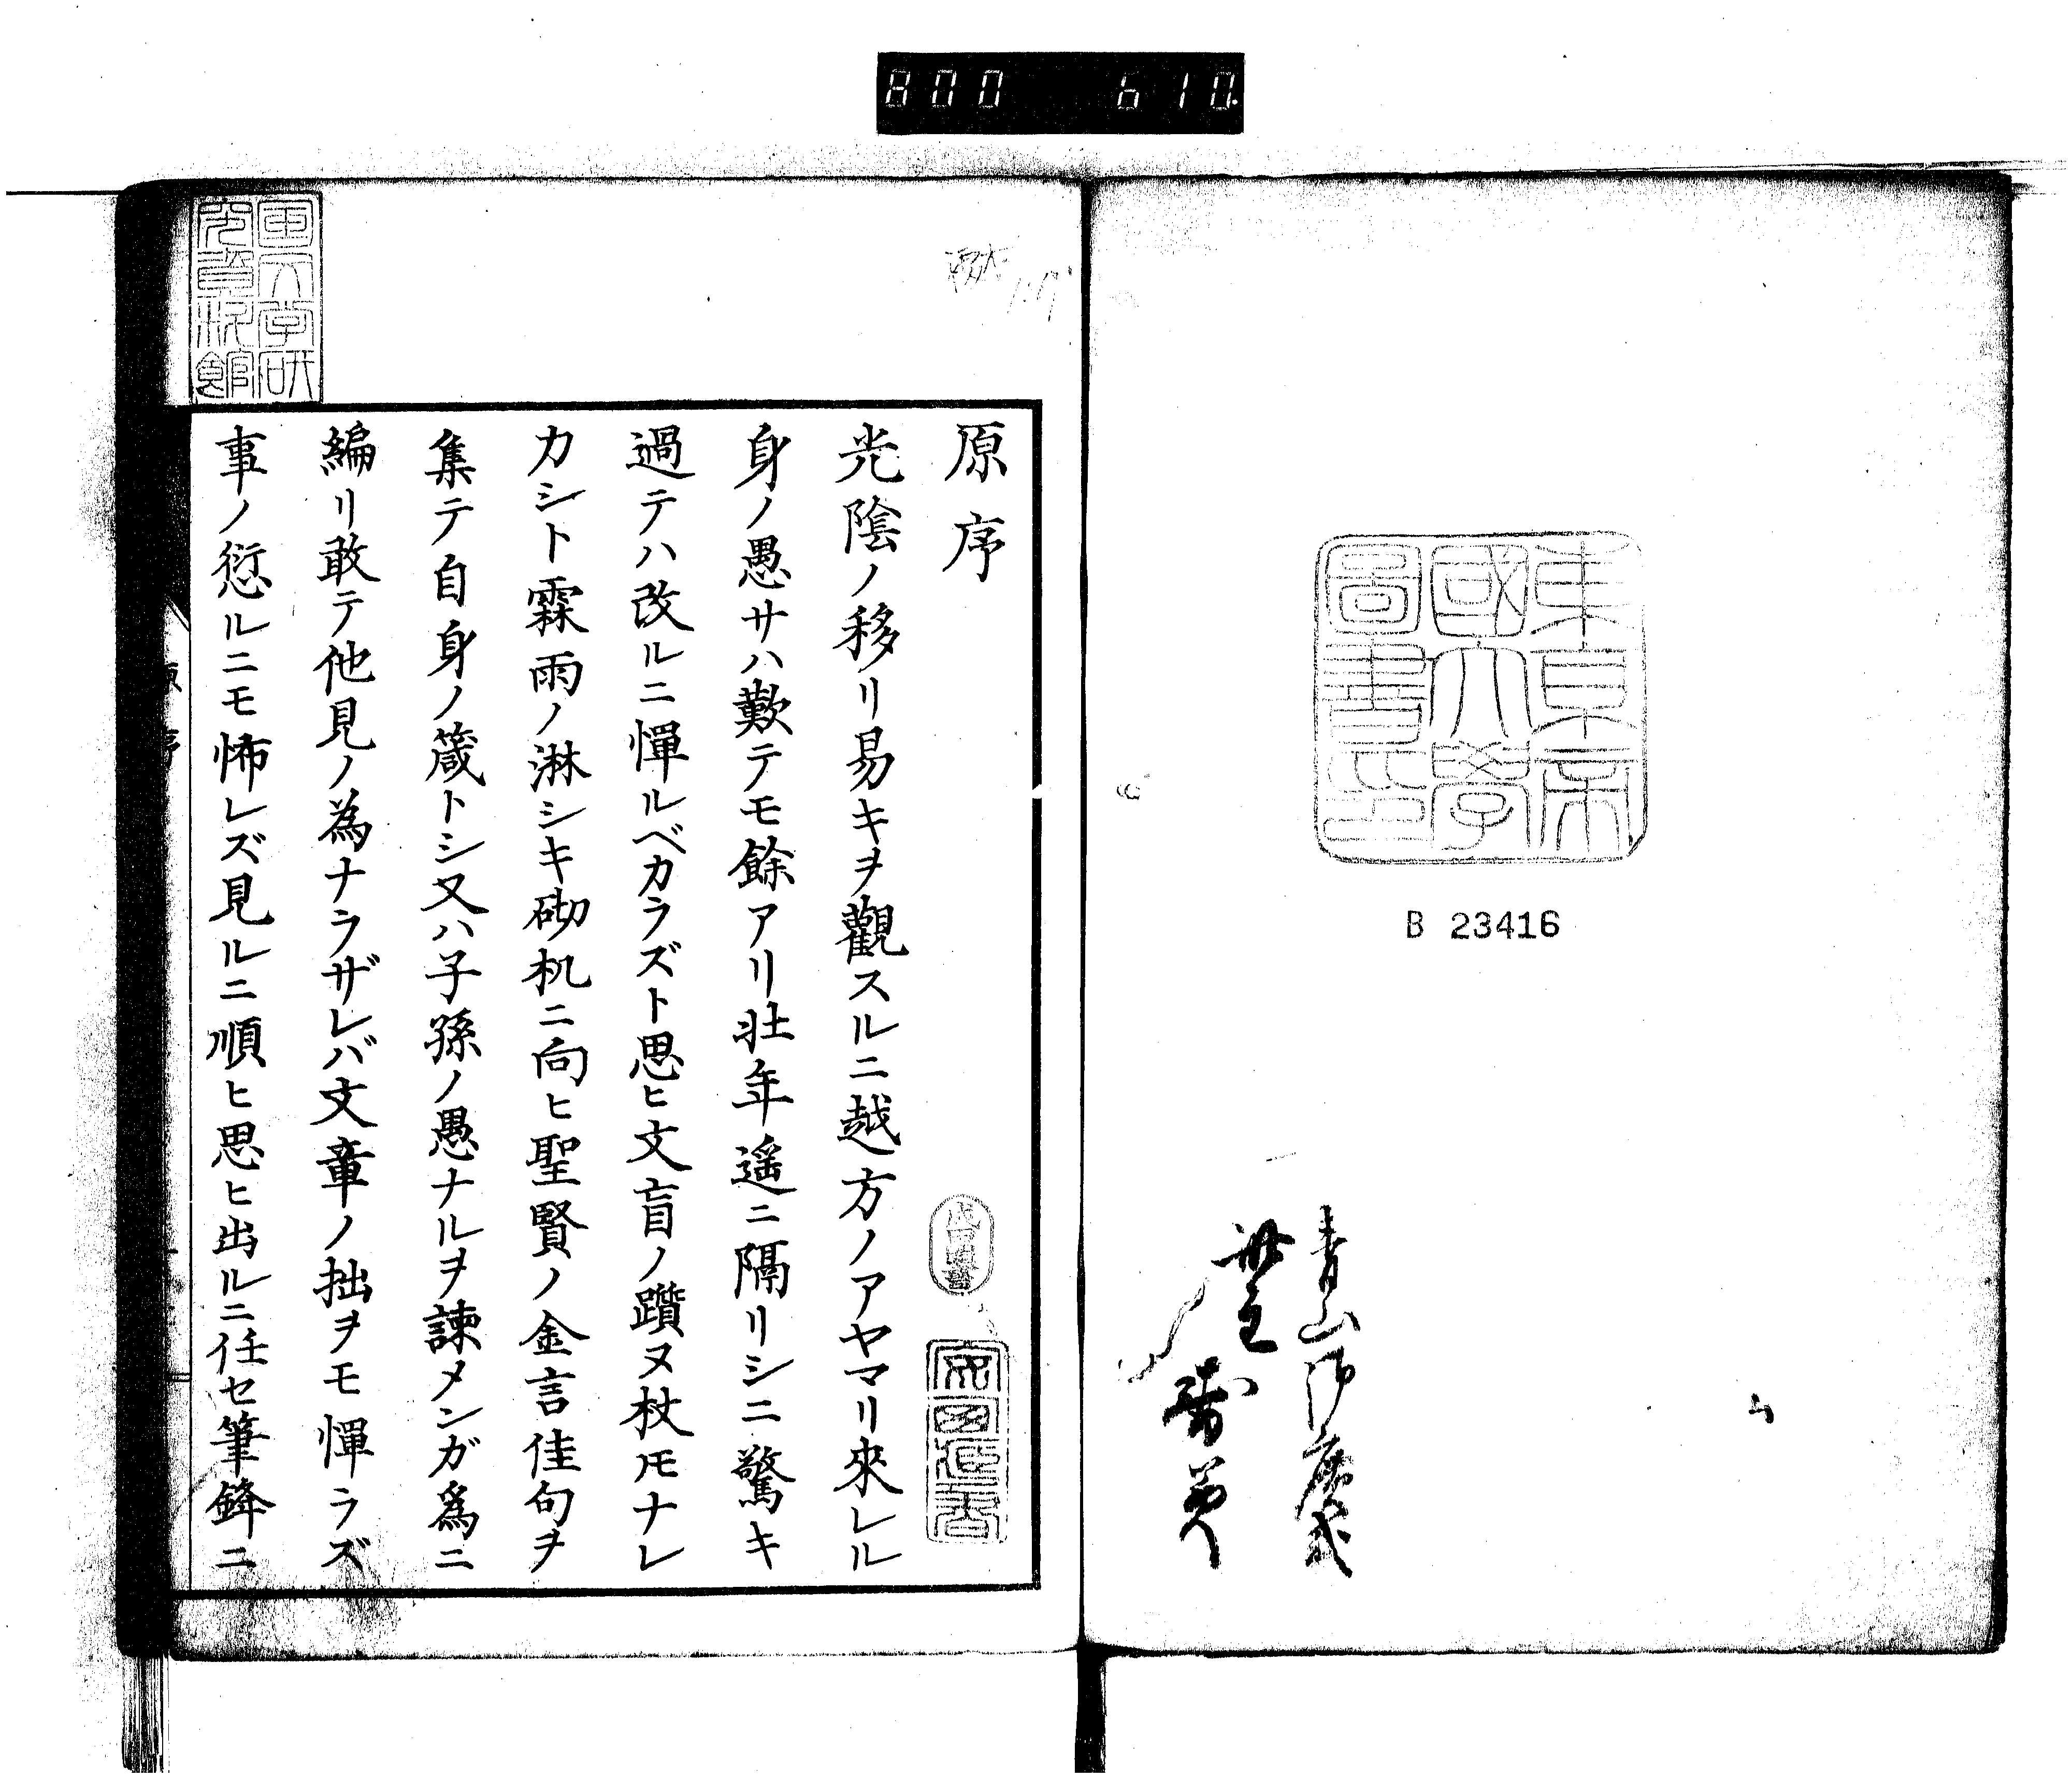 800 610.
東京帝
國大學
圖書印
B 23416
国文学研
究資料館
原序
光陰ノ移リ易キヲ觀スルニ越方ノアヤマリ來レル
身ノ愚サハ歎テモ餘アリ壯年遥ニ隔リシニ驚キ
過テハ改ルニ憚ルベカラズト思ヒ文盲ノ躓ヌ杖モナレ
カシト霖雨ノ淋シキ砌机ニ向ヒ聖賢ノ金言佳句ヲ
集テ自身ノ箴トシ又ハ子孫ノ愚ナルヲ諫メンガ爲ニ
編リ敢テ他見ノ為ナラザレバ文章ノ拙ヲモ憚ラズ
事ノ愆ルニモ怖レズ見ルニ順ヒ思ヒ出ルニ任セ筆鋒ニ